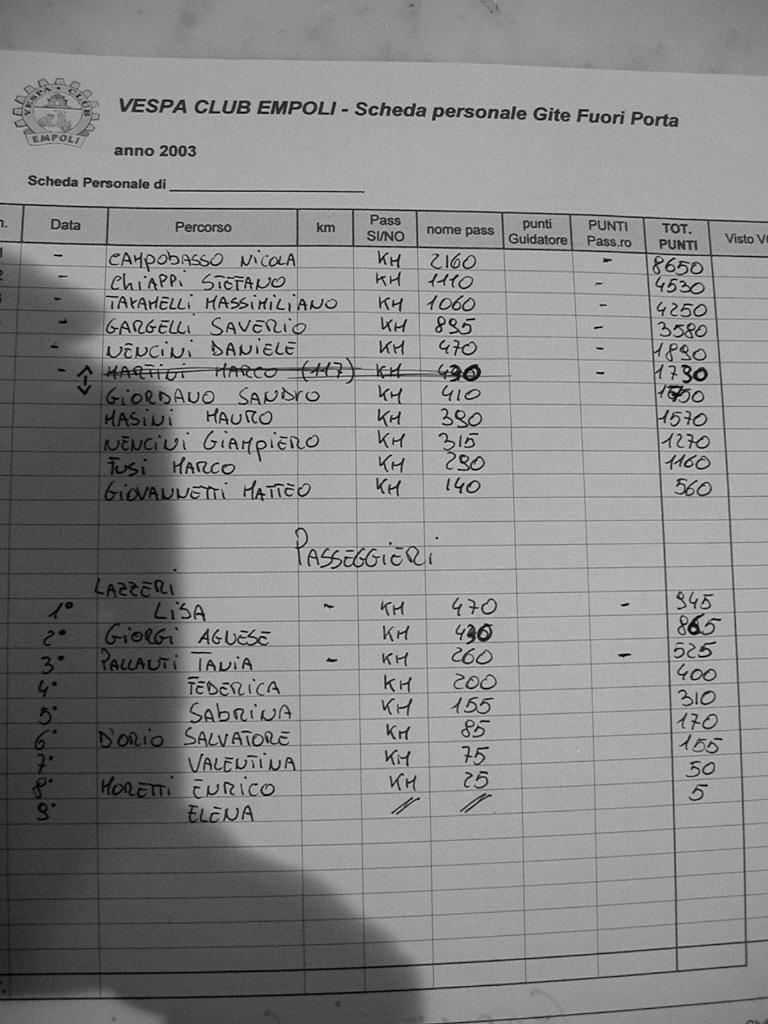 VESPA CLUB
EMPOLI
VESPA CLUB EMPOLI - Scheda personale Gite Fuori Porta
anno 2003
Scheda Personale di
Data Percorso km Pass SI/NO nome pass punti Guidatore PUNTI Pass.ro TOT. PUNTI Visto
- CAMPOBASSO NICOLA KM 2160 - 8650
- CHIAPPI STEFANO KM 1110 - 4530
- TARAMELLI MASSIMILIANO KM 1060 - 4250
- GARGELLI SAVERIO KM 895 - 3580
- NENCINI DANIELE KM 470 - 1890
- MARTINI MARCO (117) KM 430 - 1730
GIORDANO SANDRO KM 410 1650
MASINI MAURO KM 390 1570
NENCINI GIAMPIERO KM 315 1270
FUSI MARCO KM 290 1160
GIOVANNETTI MATTEO KM 140 560
PASSEGGIERI
LAZZERI
1° LISA - KM 470 - 945
2° GIORGI AGNESE KM 430 865
3° PALLANTI TANIA - KM 260 - 525
4° FEDERICA KM 200 400
5° SABRINA KM 155 310
6° D'ORIO SALVATORE KM 85 170
7° VALENTINA KM 75 155
8° MORETTI ENRICO KM 25 50
9° ELENA // // 5